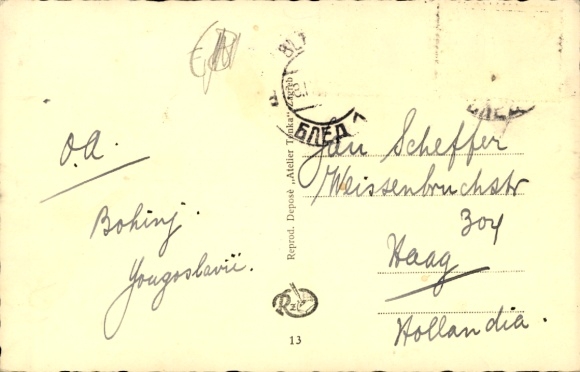 БЛЕД 1
БЛЕД
O.A.
Bohinj.
Yougoslavië.
Reprod. Deposé „Atelier Tonka" Zagreb
13
Jan Scheffer
Weissenbruchstr
304
Haag
Hollandia.